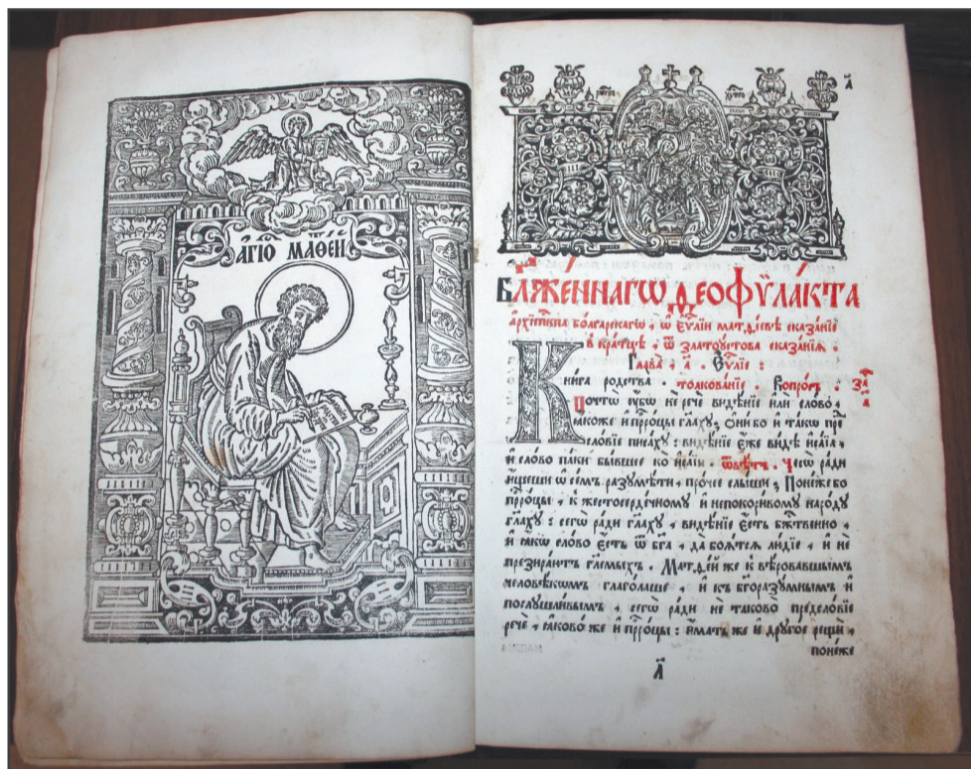 АГІО МАѲЕИ
БЛЯЖЕ́ННАГѠ ѲЕОФѴЛА́КТА
а҆рхїепⷭ҇кпа болгарскагѡ, ѡ҆ є҆ѵⷢ҇лїи матѳїевѣ сказанїе
в кратцѣ, ѿ златоустова сказанїѧ.
Глава, а҃. Є҆ѵⷢ҇лїе:
Кни́га родства. толкова́нїе. Вопро́съ. За҄
а҃
Почто ѹ҆бѡ не рече видѣ́нїе и҆ли сло́во,
ꙗ҆коже и҆ прⷪ҇ро́цы гл҃аху; Ѻ҆ни бо и҆ такѡ пре
сло́вїе писа́ху: видѣ́нїе є҆́же видѣ и҆са́їа,
и҆ сло́во па́ки бы́вшее ко и҆са́їи. ѿвѣ́тъ. Чесѡ ра́ди
и҆щеши ѡ҆ се́мъ разумѣ́ти, про́чее слы́ши; Поне́же бо
прⷪ҇ро́цы, к жестосе́рдечному и҆ непокори́вому наро́ду
гл҃аху: сегѡ ра́ди гл҃аху, видѣ́нїе є҆́сть бж҃твенно,
и҆ ꙗ҆́кѡ сло́во є҆́сть ѿ бг҃а, да боѧ́тсѧ лю́дїе, и҆ не
презира́ютъ гл҃емыхъ. Матѳе́й же к вѣ́ровавшымъ
человѣ́комъ глаго́лаше, и҆ къ бг҃оразу́мнымъ и҆
послушли́вымъ, сегѡ ра́ди не таково́ предсло́вїе
рече, ꙗ҆ково́ же и҆ прⷪ҇ро́цы: и҆́мать же и҆ друго́е рещи́,
поне́же
а҃